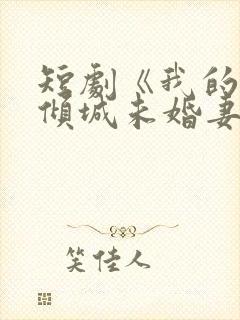 短劇《我的
傾城未婚妻
笑佳人